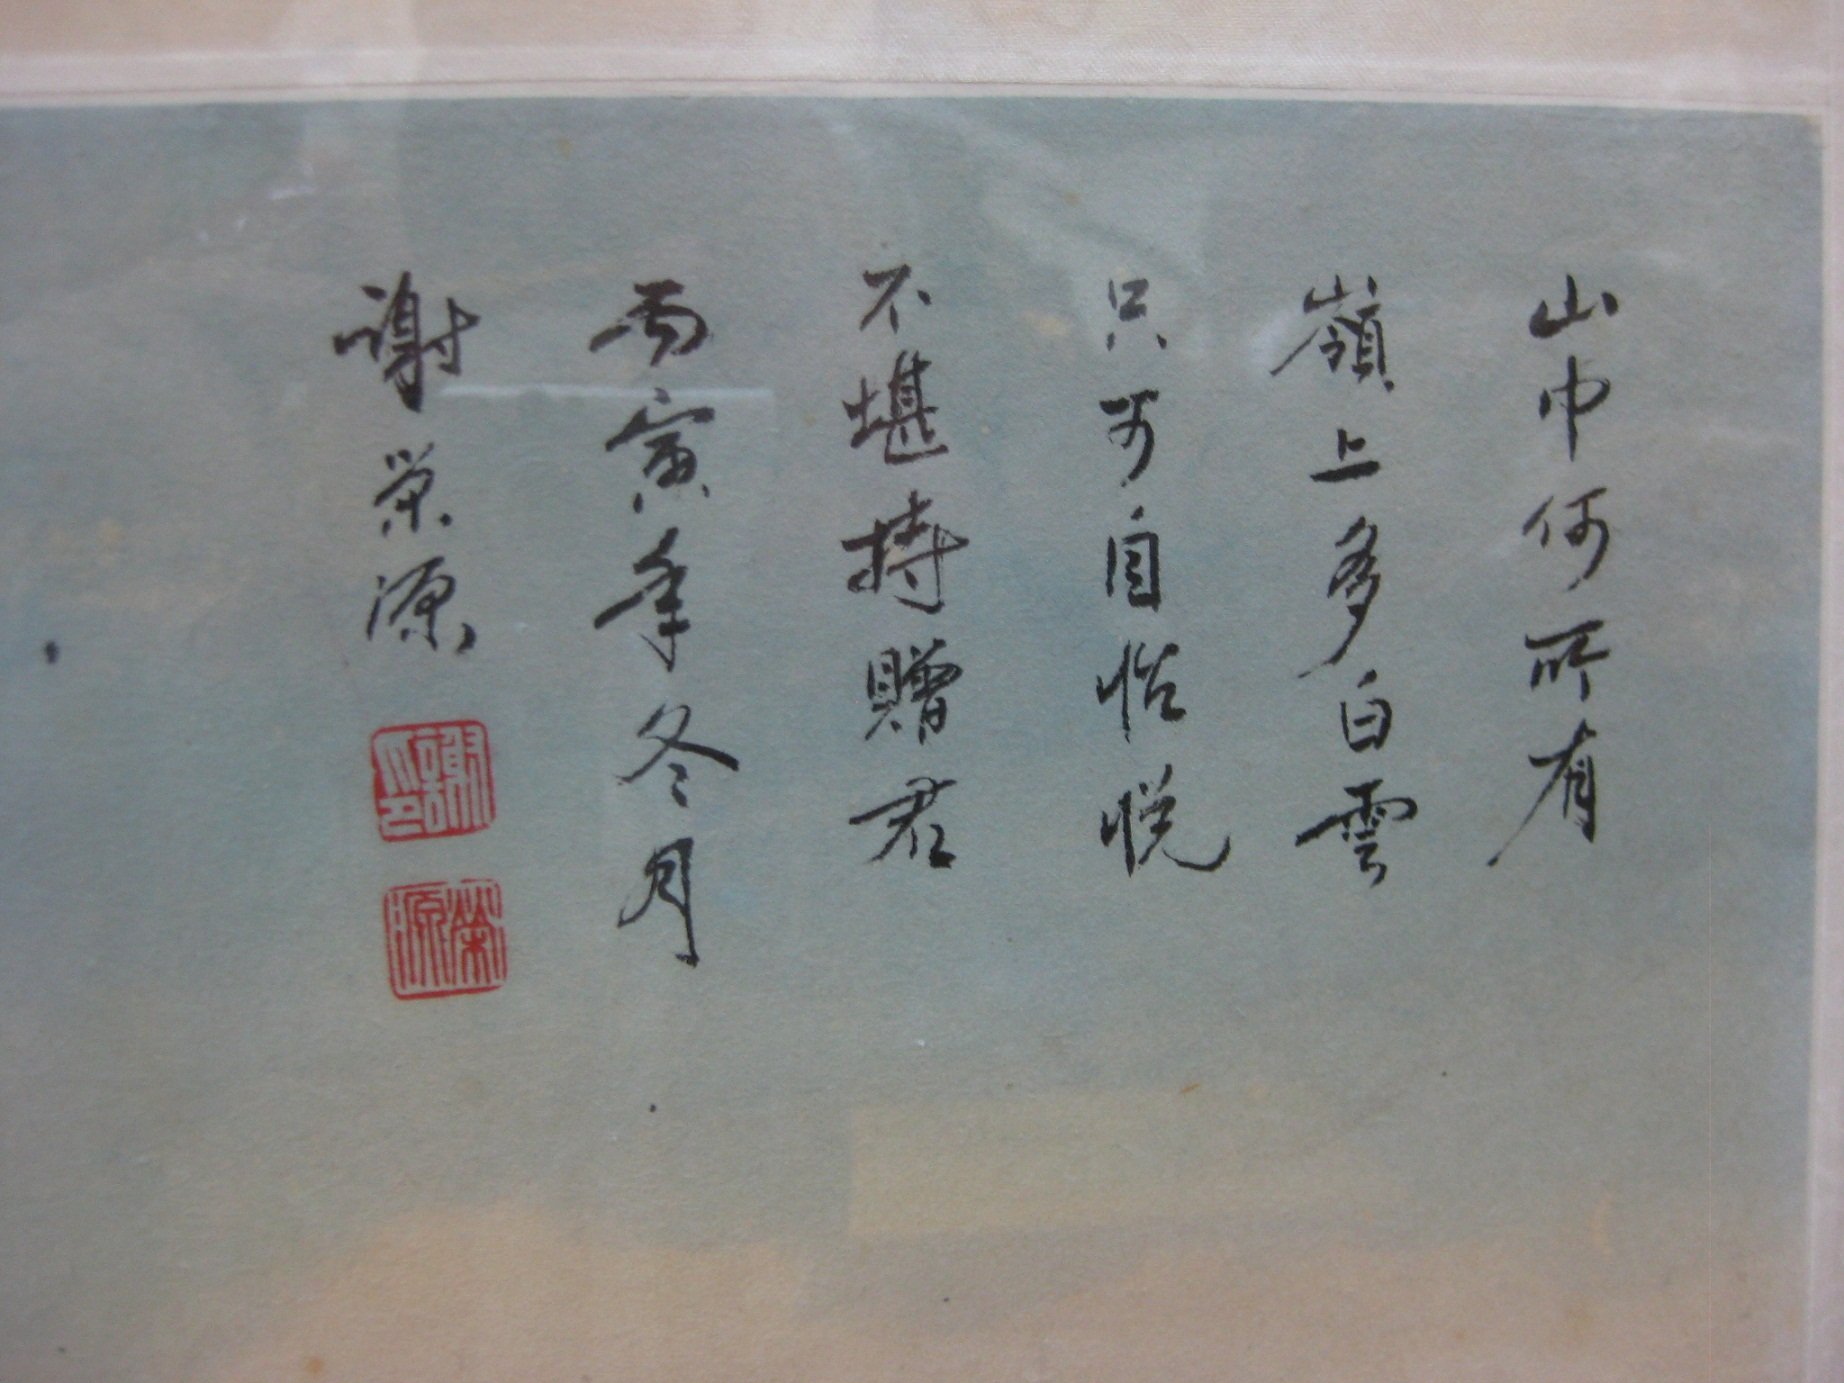 山中何所有
嶺上多白雲
只可自怡悅
不堪持贈君
丙寅年冬月
謝榮源
謝印
榮源